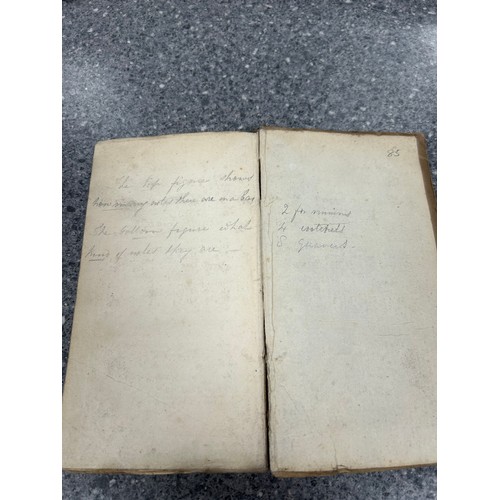 The top figures shows
how many notes there are in a bar
The bottom figure what
King of notes they are
85
2 for minims
4 crotchets
8 quavers